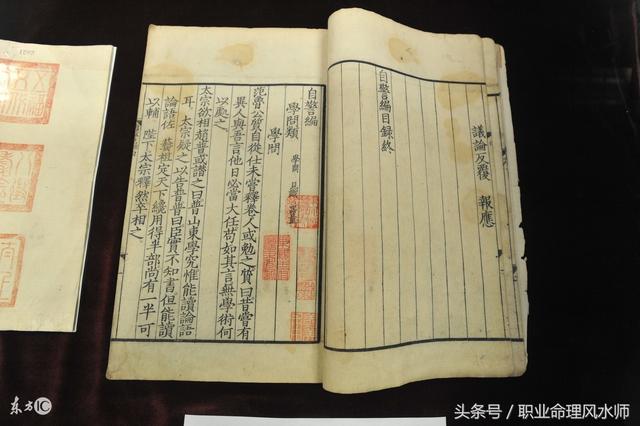 議論反覆 報應
自警編目録終
自警編
學問類 學問 見識
學問
范魯公質自從仕未嘗釋卷人或勉之質曰昔嘗有
異人與吾言他日必當大任苟如其言無學術何
以處之
太宗欲相趙普或譖之曰普山東學究惟能讀論語
耳 太宗疑之以告普普曰臣實不知書但能讀
論語佐 藝祖定天下纔用得半部尚有一半可
以輔 陛下太宗釋然卒相之
东方IC
头条号 / 职业命理风水师